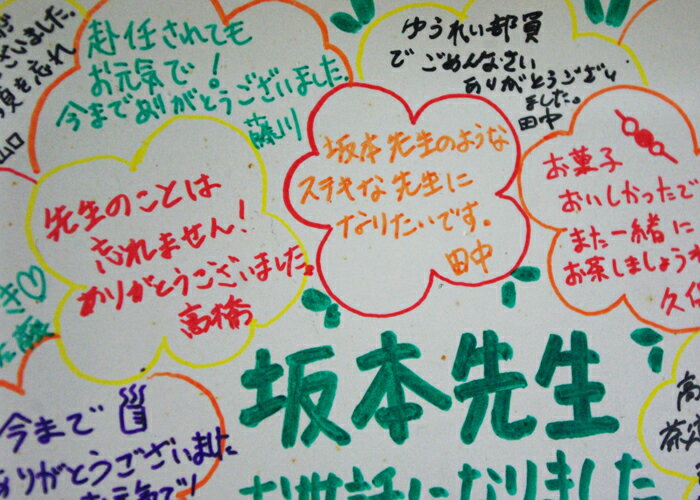 ございました。
を忘れ
山口
赴任されても
お元気で！
今までありがとうございました。
藤川
ゆうれい部員
でごめんなさい
ありがとうござい
ました。
田中
先生のことは
忘れません！
ありがとうございました。
高橋
坂本先生のような
ステキな先生に
なりたいです。
田中
お菓子
おいしかったで
また一緒に
お茶しましょうね
久保
き♡
今まで
ありがとうございました
お元気で！
坂本先生
お世話になりました
高
茶